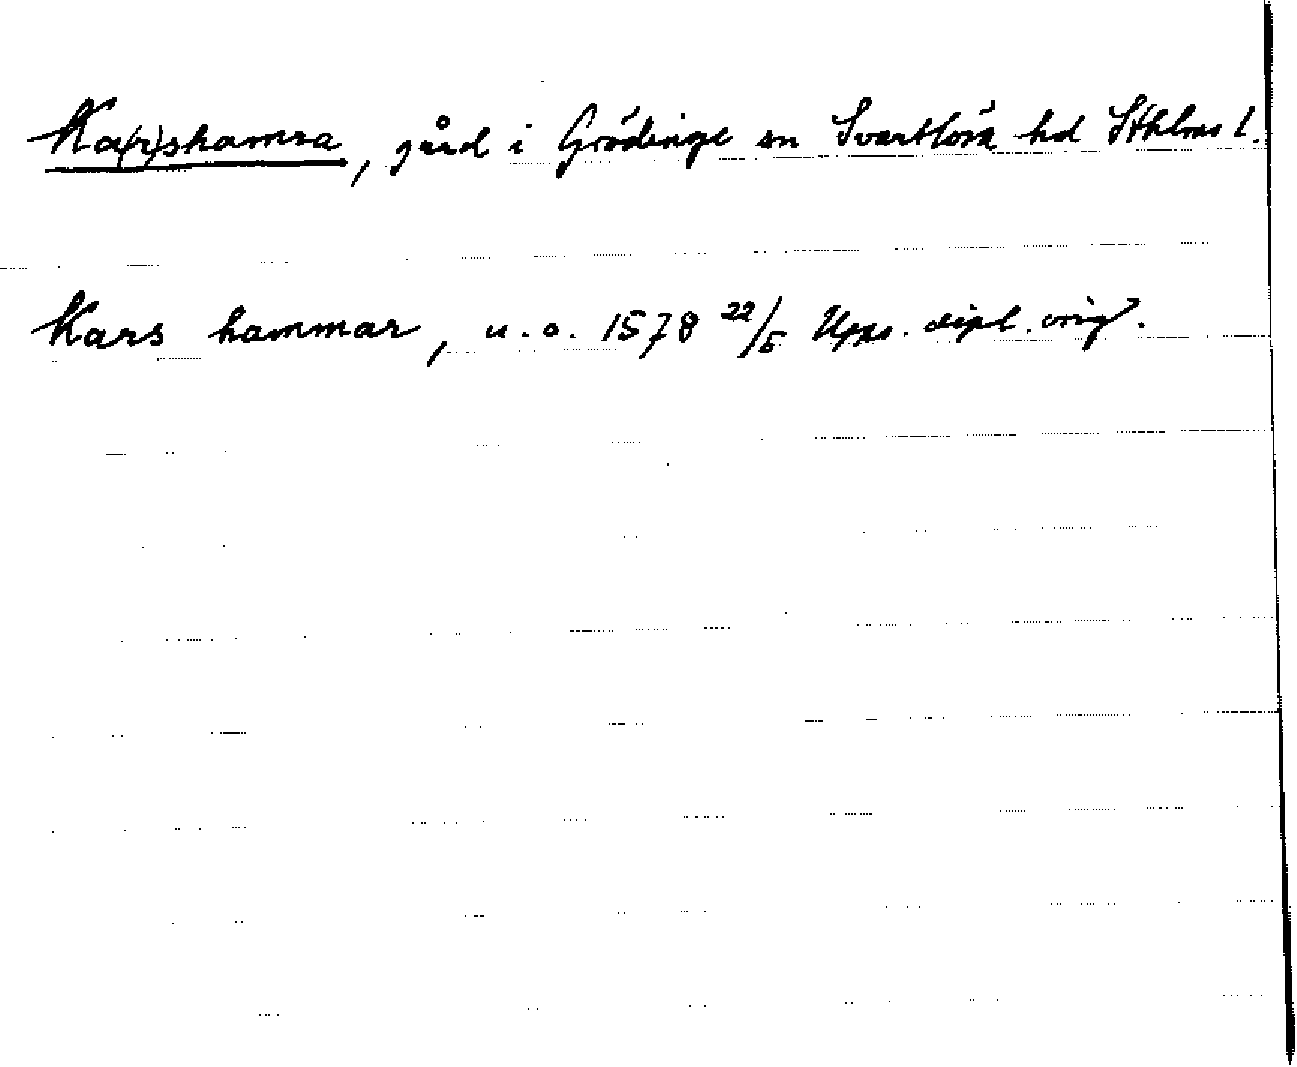 Ka(r)shamra, gård i Grödinge sn Svartlösa hd Sthlms l.
Kars hammar, u.o. 1578 22/5 Upps. dipl. orig.